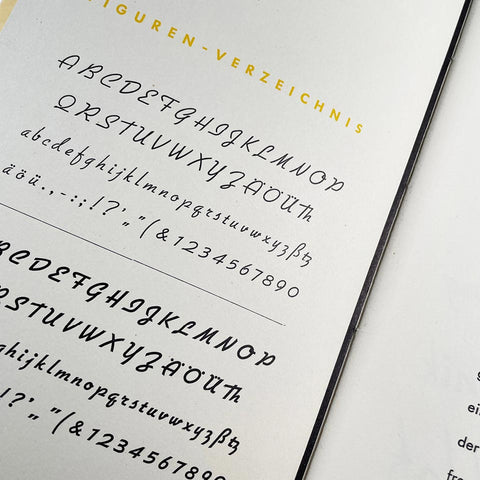 FIGUREN-VERZEICHNIS
ABCDEFGHIJKLMNOP
QRSTUVWXYZÄÖÜTh
abcdefghijklmnopqrstuvwxyzßtz
äöü.,-:;!?'„"(&1234567890
BCDEFGHIJKLMNOP
RSTUVWXYZÄÖÜTh
ghijklmnopqrstuvwxyzßtz
!?'„"(&1234567890
ei
der
fre